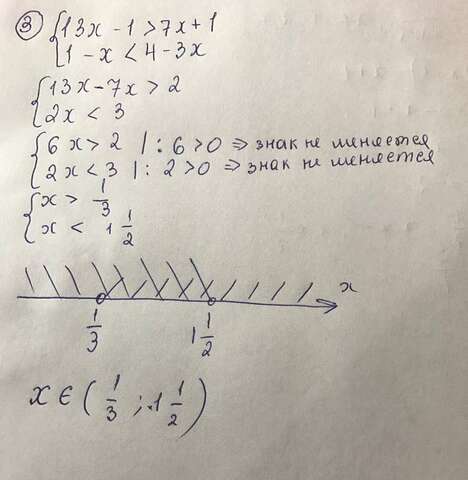 ③ { 13x - 1 > 7x + 1
{ 1 - x < 4 - 3x
{ 13x - 7x > 2
{ 2x < 3
{ 6x > 2 | : 6 > 0 ⇒ знак не меняется
{ 2x < 3 | : 2 > 0 ⇒ знак не меняется
{ x > 1/3
{ x < 1 1/2
x
1/3 1 1/2
x ∈ ( 1/3 ; 1 1/2 )